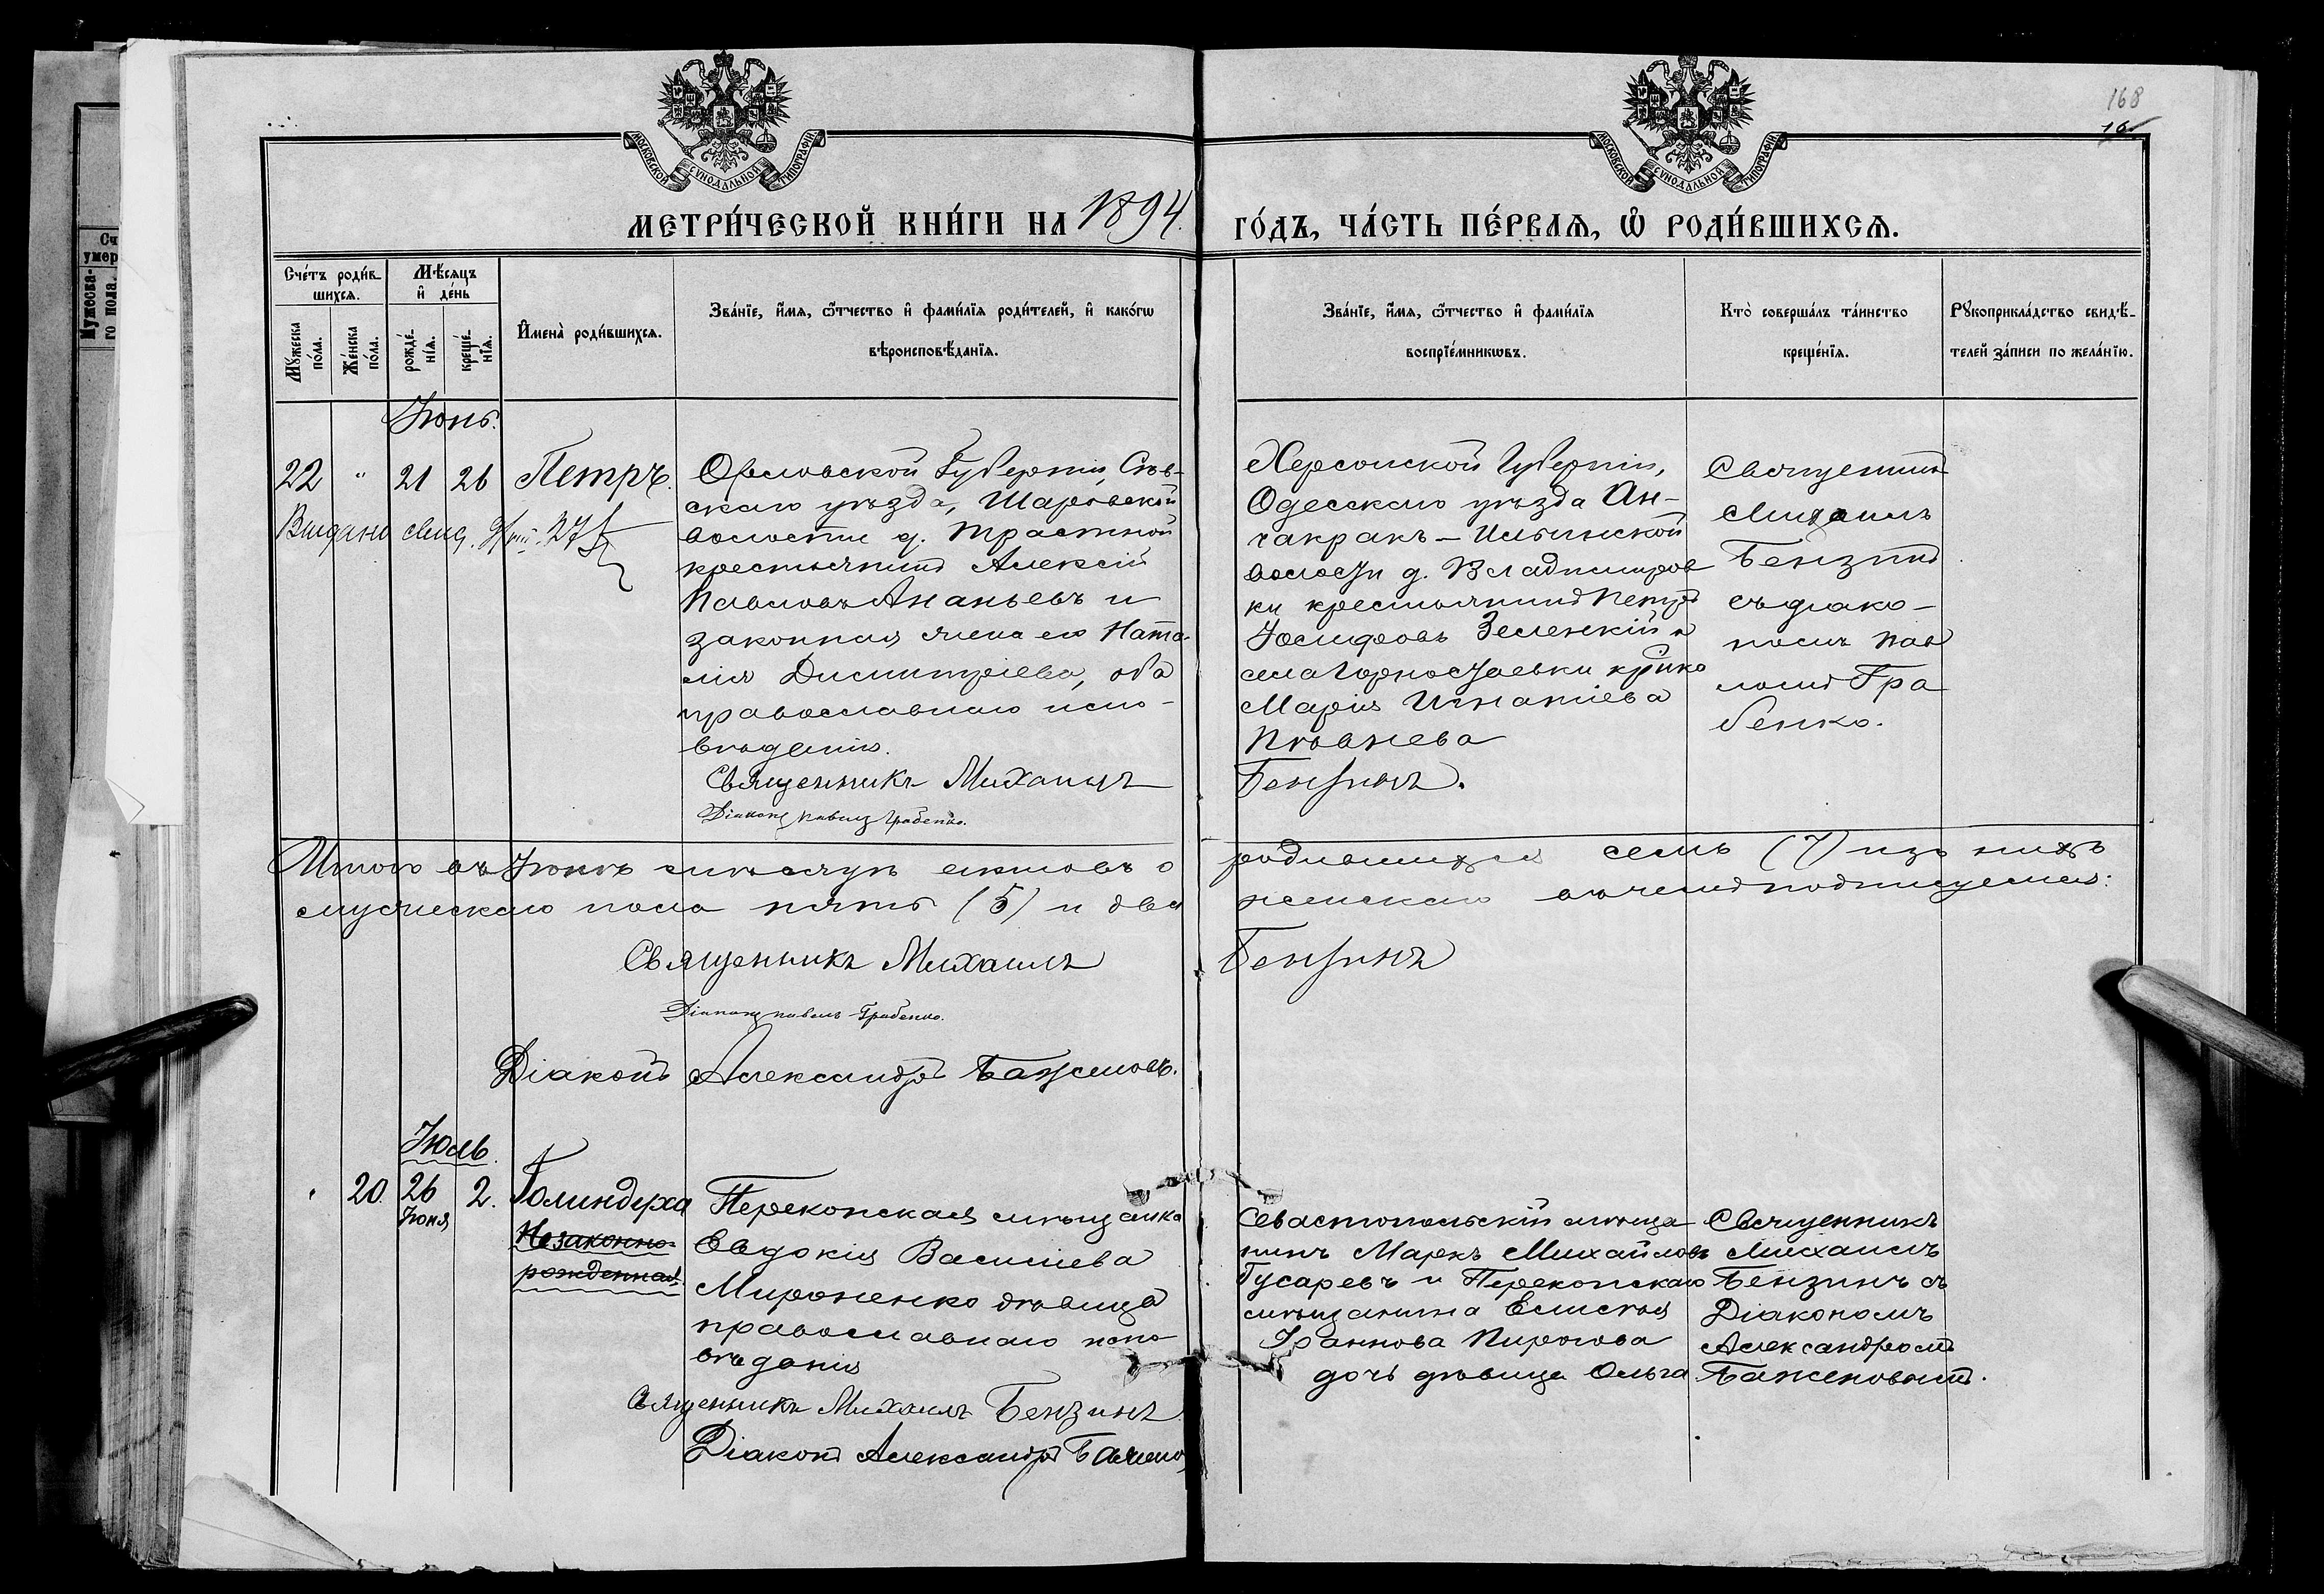 168
МОСКОВСКОЙ СѴНОДАЛЬНОЙ ТИПОГРАФІИ
МОСКОВСКОЙ СѴНОДАЛЬНОЙ ТИПОГРАФІИ
МЕТРИ́ЧЕСКОЙ КНИ́ГИ НА 1894.
ГО́ДЪ, ЧА́СТЬ ПЕ́РВАЯ, Ѡ҆ РОДИ́ВШИХСЯ.
Сче́тъ роди́в-
шихся.
Мѣ́сяцъ
и҆ де́нь
Мꙋ́жеска
по́ла.
Же́нска
по́ла.
рожде́-
нїя.
креще́-
нїя.
И҆мена̀ роди́вшихся.
Зва́нїе, и҆́мя, ѻ҆́тчество и҆ фами́лїя роди́телей, и҆ како́гѡ
вѣроисповѣ́данїя.
Зва́нїе, и҆́мя, ѻ҆́тчество и҆ фами́лїя
воспрїе́мникѡвъ.
Кто̀ соверша́лъ та́инство
креще́нїя.
Рꙋкоприкла́дство свидѣ́-
телей за́писи по жела́нїю.
Сч
умер
Мужеска-
го пола.
Іюнь.
22 " 21 26 Петръ.
Выдано
Орловской Губерніи, Сѣв-
скаго уѣзда, Шаровской
волости д. Трастной
крестьянинъ Алексій
Павловъ Ананьевъ и
законная жена его Ната-
лія Димитріева, оба
православнаго испо-
вѣданія.
Священникъ Михаилъ
Діаконъ Павелъ Грабенко.
Херсонской Губерніи,
Одесскаго уѣзда Ан-
чакракъ - Ильинской
волости д. Владиміров
ки крестьянинъ Петръ
Іосифовъ Зеленкій и
села Горностаевки
Марія Игнатіева
Пѣвнева
Бензинъ.
Священникъ
Михаилъ
Бензинъ
съ діако-
номъ Пав
ломъ Гра
бенко.
Итого въ Іюнѣ мѣсяцѣ актовъ о
родившихся семь (7) изъ нихъ
мужескаго пола пять (5) и два
женскаго въ чемъ подписуемся:
Священникъ Михаилъ
Бензинъ
Діаконъ Павелъ Грабенко.
Діаконъ Александръ Баженовъ.
Іюль.
" 20. 26 2. Голиндуха
Іюня
Незаконно-
рожденная.
Перекопская мѣщанка
Евдокія Василіева
Мироненко дѣвица
православнаго испо
вѣданія
Священникъ Михаилъ Бензинъ
Діаконъ Александръ Бажено
Севастопольскій мѣща
нинъ Маркъ Михайловъ
Гусаревъ и Перекопскаго
мѣщанина Елисея
Іоаннова Пирогова
дочь дѣвица Ольга
Священникъ
Михаилъ
Бензинъ съ
Діакономъ
Александромъ
Баженовымъ.